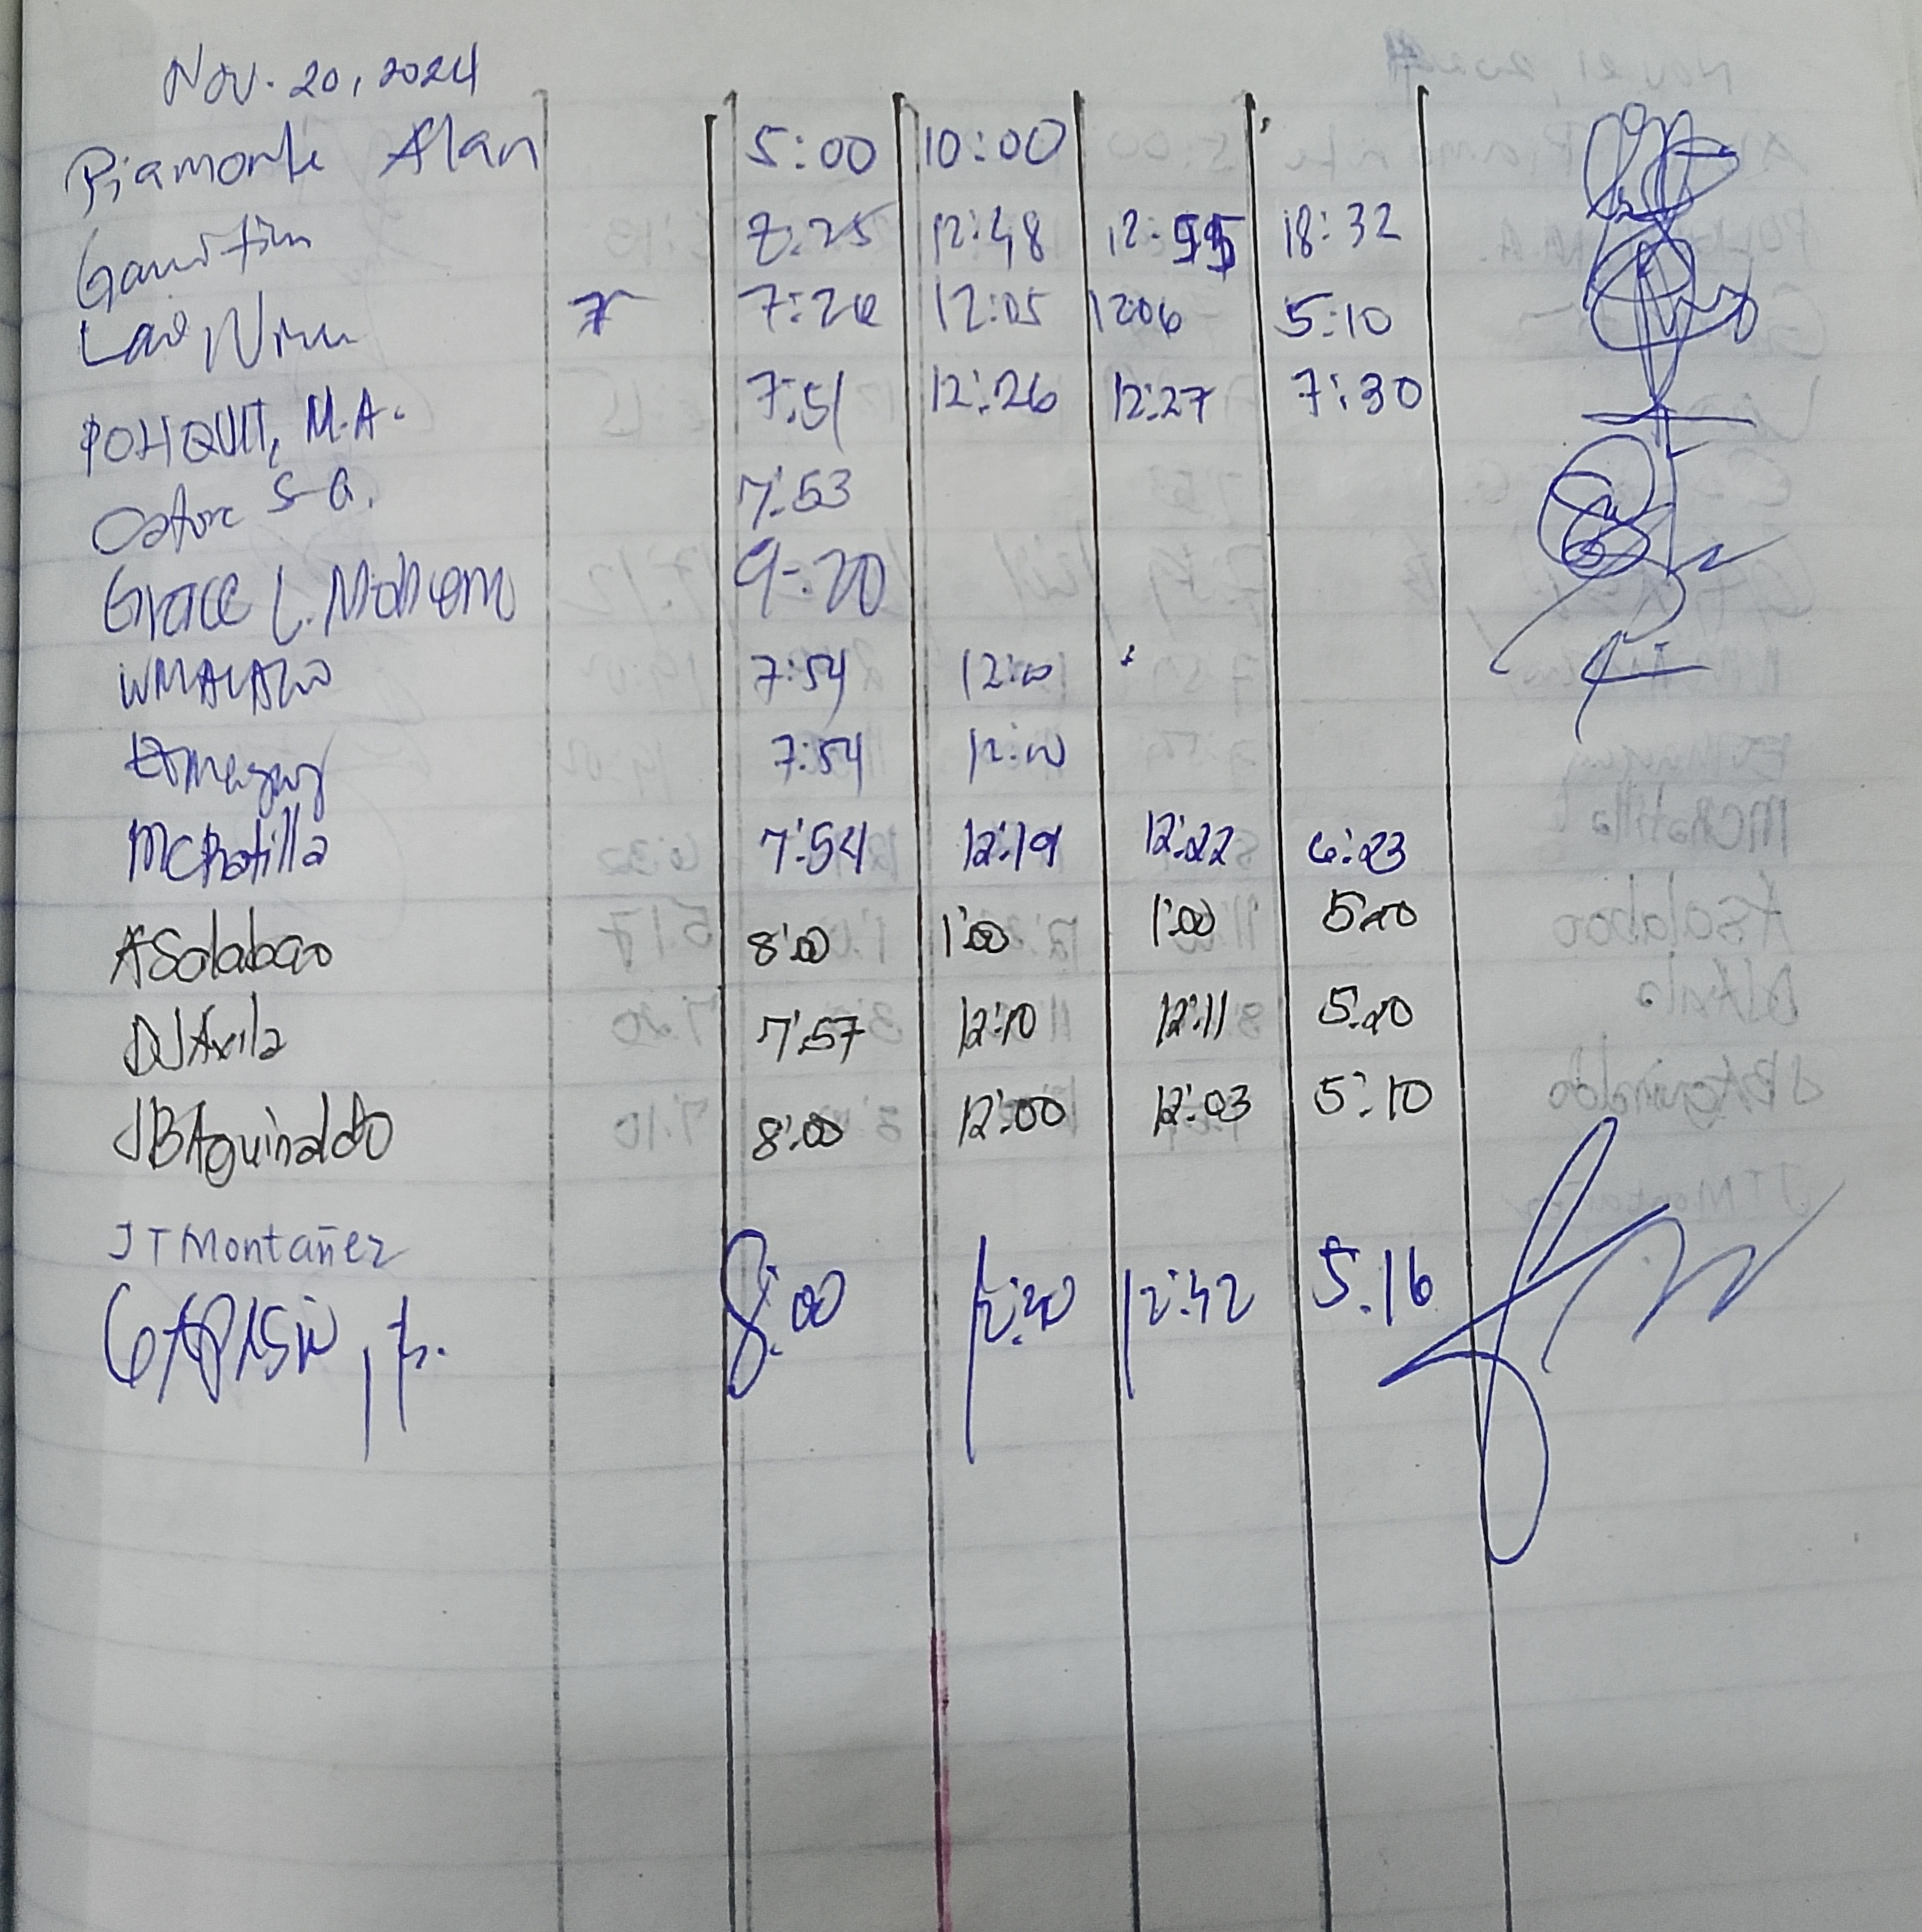 Nov. 20, 2024
Piamonte Alan 5:00 10:00
7:25 12:48 12:55 18:32
7 7:26 12:05 1206 5:10
POLIQUIT, M.A. 7:51 12:26 12:27 7:30
S.G. 7:53
Grace L. 9:20
7:54 12:00
7:54 12:00
MCRatilla 7:54 12:19 12:22 6:23
ASalabao 8:00 1:00 1:00 5:20
DJAvila 7:57 12:10 12:11 5:20
JBAguinaldo 8:00 12:00 12:03 5:10
JTMontañez
GAPASIN, Jr. 8:00 12:40 12:42 5:16